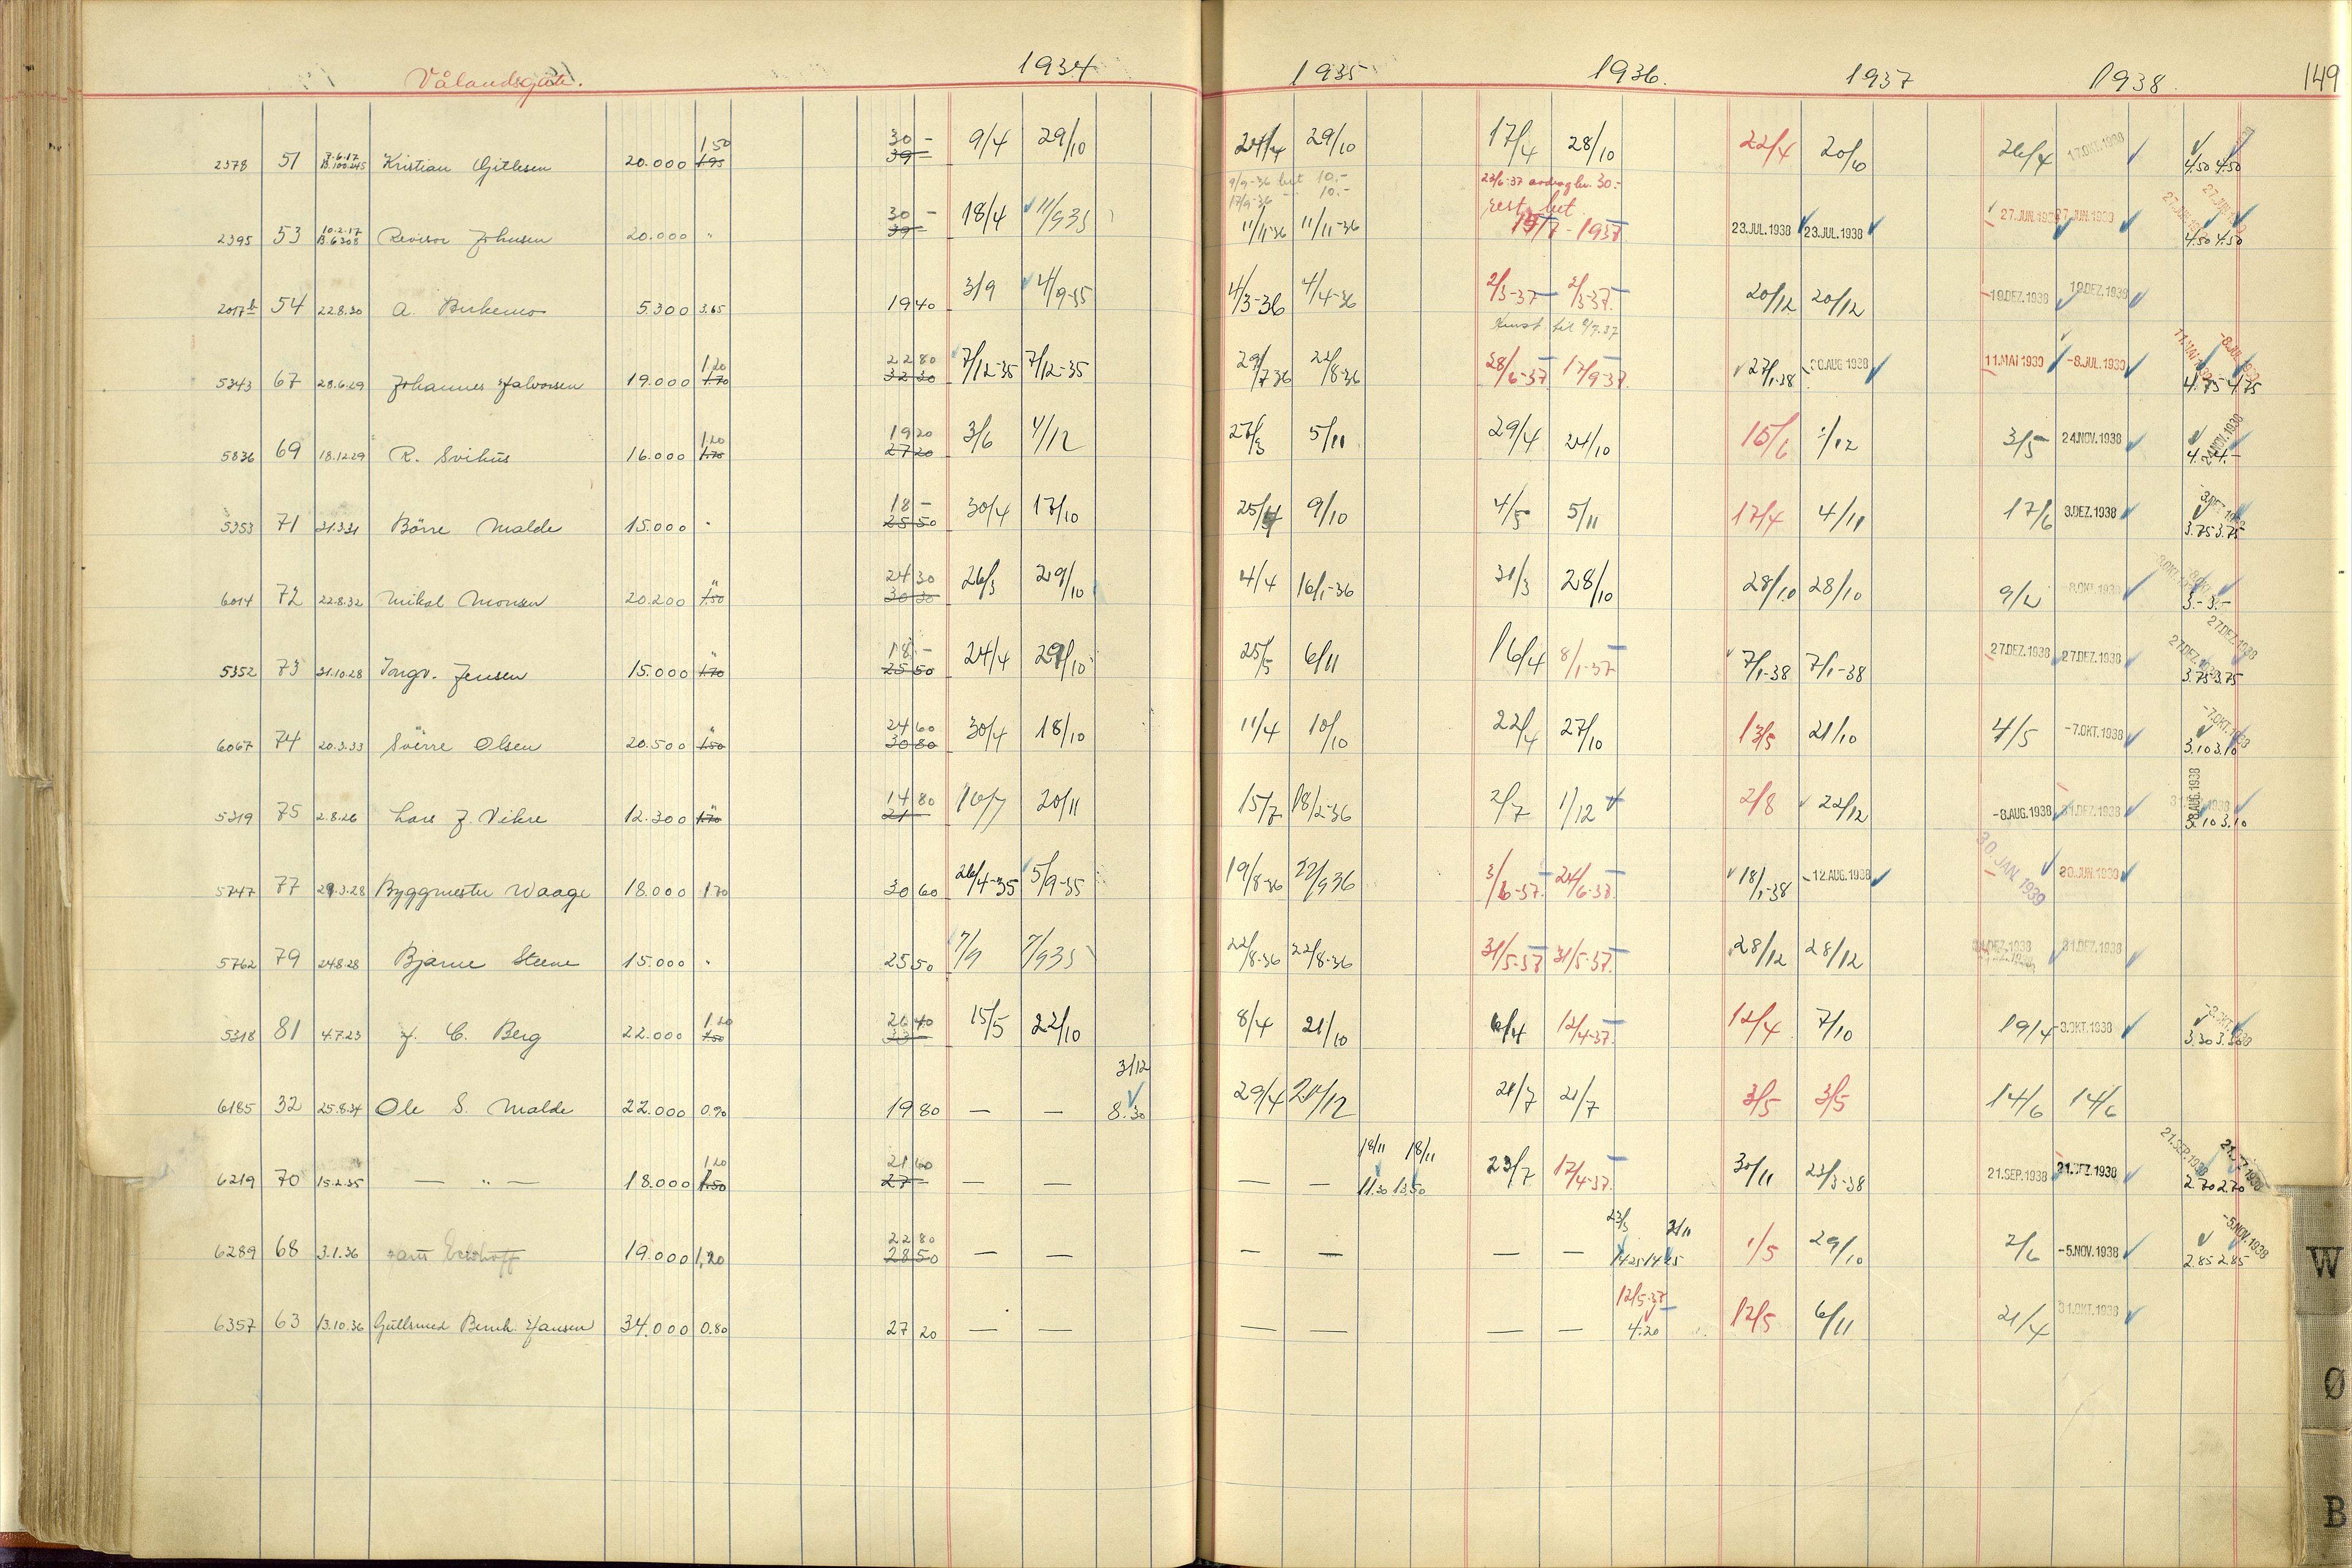 Vålandsgate. 1934 1935 1936. 1937 1938. 149
2378 51 7.6.17 Kristian Gitlesen 20.000 1.50 1.95 30 - 39 - 9/4 29/10 24/4 29/10 17/4 28/10 22/4 20/10 26/4 17.OKT.1938 4.50 4.50
9/9-36 bet 10.- 23/6-37 avdrag kr. 30.-
17/9-36 - 10.- rest bet.
2395 53 10.2.17 B.6308 Revisor Johnsen 20.000 " 30 - 39 - 18/4 11/935 11/11-36 11/11-36 15/7-1937 23.JUL.1938 23.JUL.1938 27.JUN.1939 27.JUN.1939 4.50 4.50
2017b 54 22.8.30 A. Birkemo 5.300 3.65 19 40 3/9 4/9-35 4/3-36 4/4-36 2/3-37 2/3-37. 20/12 20/12 19.DEZ.1938 19.DEZ.1938
5343 67 28.6.29 Johannes Halvorsen 19.000 1.20 1.70 22 80 32 30 7/12-35 7/12-35 29/7 36 22/8-36 28/6-37 17/9-37. 27/1-38 30.AUG 1938 11.MAI 1939 -8.JUL.1939 4.75 4.75
5836 69 18.12.29 R. Svihus 16.000 1.20 1.70 19 20 27 20 3/6 4/12 27/3 5/11 29/4 24/10 15/6 1/12 3/5 24.NOV.1938 24.NOV.1938 4.- 4.-
5353 71 31.3.31 Börre Malde 15.000 " 18 - 25 50 30/4 17/10 25/4 9/10 4/5 5/11 17/4 4/11 17/6 3.DEZ.1938 3.75 3.75
6014 72 22.8.32 Mikal Monsen 20.200 " 1.50 24 30 30 30 26/3 29/10 4/4 16/1-36 31/3 28/10 28/10 28/10 9/2 -8.OKT.1938 3.- 3.-
5352 73 31.10.28 Ingv. Jensen 15.000 " 1.70 18 - 25 50 24/4 29/10 25/5 6/11 16/4 8/1-37 7/1-38 7/1-38 27.DEZ.1938 27.DEZ.1938 27.DEZ.1938 27.DEZ.1938 3.75 3.75
6067 74 20.3.33 Sverre Olsen 20.500 " 1.50 24 60 30 80 30/4 18/10 11/4 10/10 22/4 27/10 13/5 21/10 4/5 -7.OKT.1938 -7.OKT.1938 3.10 3.10
5319 75 2.8.26 Lars J. Vikre 12.300 " 1.70 14 80 21 - 10/7 20/11 15/7 18/2-36 2/7 1/12 2/8 22/12 -8.AUG.1938 31.DEZ.1938 8.AUG.1938 3.10 3.10
5747 77 29.3.28 Byggmester Waage 18.000 1 70 30 60 26/4-35 5/9-35 19/8-36 22/936 3/6-37. 24/6-37. 18/1-38 -12.AUG.1938 30.JAN.1939 30.JUN.1939
5762 79 24.8.28 Bjarne Steene 15.000 " 25 50 7/9 7/935 22/8-36 22/8-36 31/5-37 31/5-37. 28/12 28/12 31.DEZ.1938 31.DEZ.1938
5318 81 4.7.23 J. C. Berg 22.000 1.20 1.50 26 40 33 - 15/5 22/10 8/4 21/10 6/4 12/4-37. 12/4 7/10 19/4 -3.OKT.1938 3.30 3.30
3/12
6185 32 25.8.34 Ole S. Malde 22.000 0.90 19 80 — — 8.30 29/4 20/12 21/7 21/7 3/5 3/5 14/6 14/6
18/11 18/11
6219 70 15.2.35 — " — 18.000 1.20 1.50 21 60 27 - — — — — 11.30 13.50 23/7 17/4-37. 30/11 23/3-38 21.SEP.1938 21.DEZ.1938 21.SEP.1938 2.70 2.70
23/3 21/11
6289 68 3.1.36 19.000 1,20 22 80 28 50 — — — — — — 14.25 14.25 1/5 29/10 2/6 -5.NOV.1938 -5.NOV.1938 2.85 2.85
12/5-37
6357 63 13.10.36 Gullsmed Bernh. Hansen 34.000 0.80 27 20 — — — — — — 4.20 12/5 6/11 21/4 31.OKT.1938
W
Ø
B